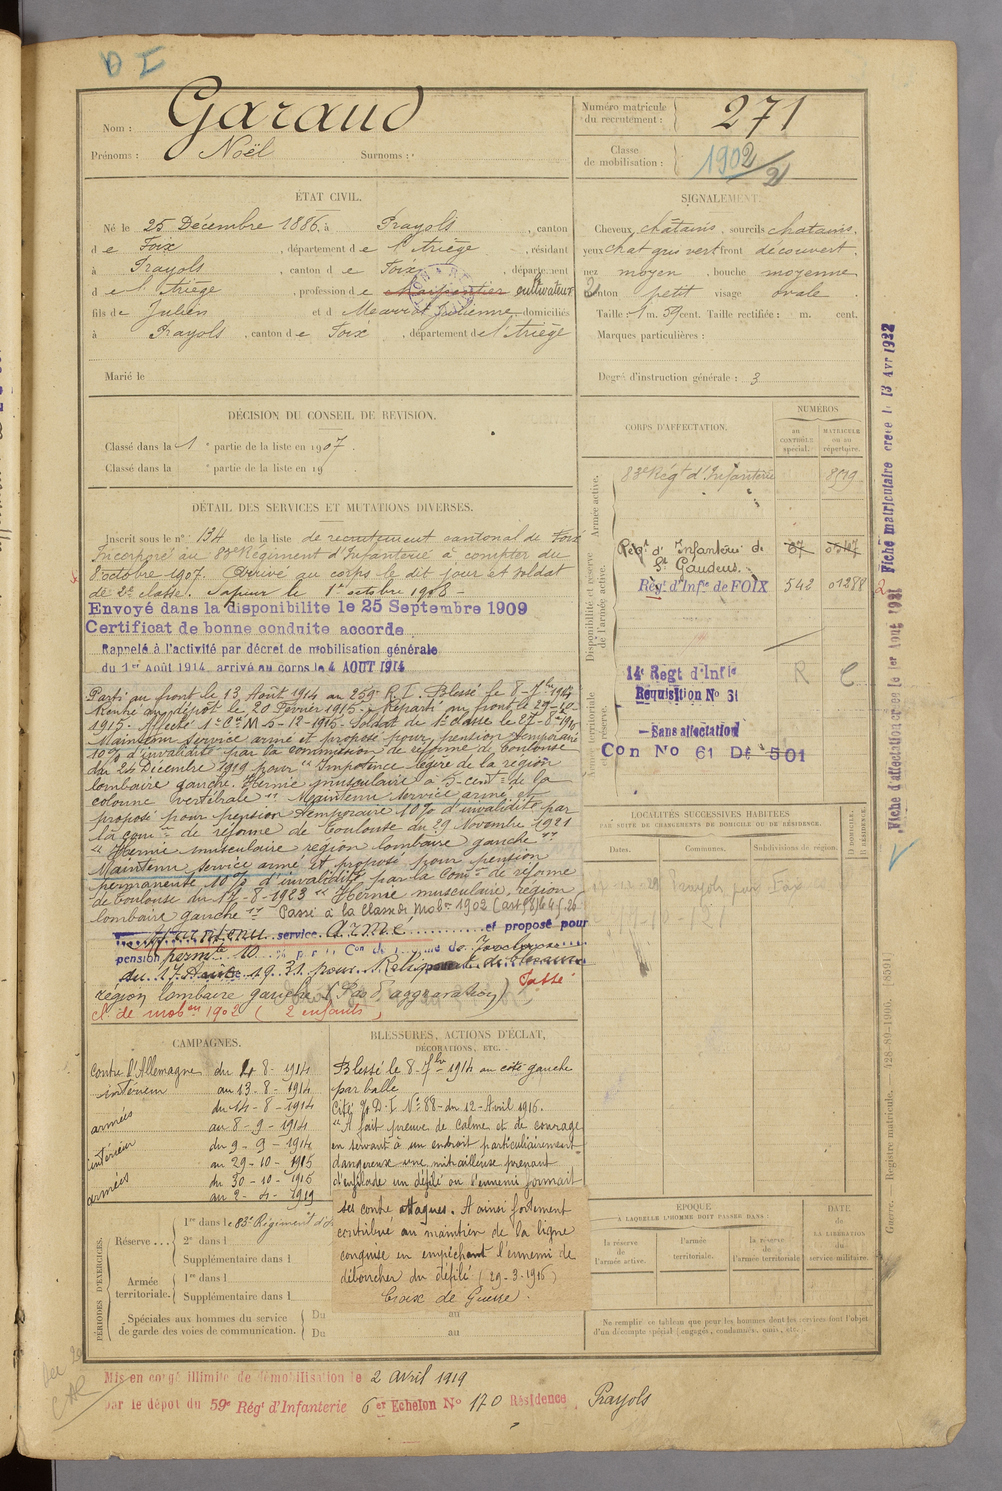 D I
Nom : Garaud
Prénoms : Noël Surnoms :
Numéro matricule du recrutement : 271
Classe de mobilisation : 1902/21
ÉTAT CIVIL.
Né le 25 Décembre 1886, à Prayols, canton
de Foix, département de l'Ariège, résidant
à Prayols, canton de Foix, département
de l'Ariège, profession de charpentier cultivateur
fils de Julien et d Julienne domiciliés
à Prayols, canton de Foix, département de l'Ariège
Marié le
SIGNALEMENT.
Cheveux châtains, sourcils châtains,
yeux chat gris vert front découvert,
nez moyen, bouche moyenne
menton petit visage ovale.
Taille : 1 m. 59 cent. Taille rectifiée : m. cent.
Marques particulières :
Degré d'instruction générale : 3
DÉCISION DU CONSEIL DE REVISION.
Classé dans la 1e partie de la liste en 1907.
Classé dans la e partie de la liste en 19
DÉTAIL DES SERVICES ET MUTATIONS DIVERSES.
Inscrit sous le n° 134 de la liste de recrutement cantonal de Foix
Incorporé au 83e Régiment d'Infanterie à compter du
8 octobre 1907. Arrivé au corps le dit jour et soldat
de 2e classe. Sapeur le 1er octobre 1908 -
Envoyé dans la disponibilite le 25 Septembre 1909
Certificat de bonne conduite accorde
Rappelé à l'activité par décret de mobilisation générale
du 1er Août 1914, arrivé au corps le 4 AOUT 1914
Parti au front le 13 Août 1914 au 259e R.I. Blessé le 8-7bre 1914
Rentré au dépôt le 20 Février 1915. Reparti au front le 29-10-
1915. Affecté 1e Cie M 5-12-1915. Soldat de 1e classe le 27-8-1916
Maintenu service armé et proposé pour pension temporaire
10% d'invalidité par la commission de réforme de Toulouse
du 24 Décembre 1919 pour "Impotence légère de la région
lombaire gauche. Hernie musculaire à 5 cent. de la
colonne vertébrale" Maintenu service armé et
proposé pour pension temporaire 10% d'invalidité par
la com. de réforme de Toulouse du 29 Novembre 1921
"Hernie musculaire region lombaire gauche"
Maintenu service armé et proposé pour pension
permanente 10% d'invalidité par la Com. de réforme
de Toulouse du 17-8-1923 "Hernie musculaire, région
lombaire gauche" Passé à la Classe de Mob. 1902
Maintenu service armé et proposé pour
pension perm. 10 % par la Con de réforme de Toulouse
du 17 19.31 pour
région lombaire gauche (Pas d'aggravation) Passé
cl. de mob. 1902 (2 enfants)
CORPS D'AFFECTATION.
NUMÉROS
au CONTRÔLE spécial.
MATRICULE ou au répertoire.
Armée active.
83e Régt d'Infanterie 8519
Disponibilité et réserve de l'armée active.
Régt d'Infanterie de St Gaudens
Régt d'Infie de FOIX 542 01288
Armée territoriale et réserve.
14e Regt d'Infie
Requisition No 31
— Sans affectation
Con No 61 De 501
R C
LOCALITÉS SUCCESSIVES HABITÉES
PAR SUITE DE CHANGEMENTS DE DOMICILE OU DE RÉSIDENCE.
Dates. Communes. Subdivisions de région.
D. DOMICILE. R. RÉSIDENCE.
Prayols par Foix
CAMPAGNES.
contre l'Allemagne du 4-8-1914
intérieur au 13-8-1914
armées du 14-8-1914
au 8-9-1914
intérieur du 9-9-1914
au 29-10-1915
armées du 30-10-1915
au 2-4-1919
BLESSURES, ACTIONS D'ÉCLAT,
DÉCORATIONS, ETC.
Blessé le 8-7bre 1914 au côté gauche
par balle
Cité O. D. I. No 88 du 12-Avril 1916.
"A fait preuve de calme et de courage
en servant à un endroit particulièrement
dangereux une mitrailleuse prenant
d'enfilade un défilé où l'ennemi formait
ses contre attaques. A ainsi fortement
contribué au maintien de la ligne
conquise en empêchant l'ennemi de
déboucher du défilé. (29-3-1916)
Croix de Guerre.
PÉRIODES D'EXERCICES.
Réserve... 1re dans le 83e Régiment d'
2e dans l
Supplémentaire dans l
Armée territoriale. 1re dans l
Supplémentaire dans l
Spéciales aux hommes du service
de garde des voies de communication.
Du au
Du au
ÉPOQUE
À LAQUELLE L'HOMME DOIT PASSER DANS :
la réserve de l'armée active.
l'armée territoriale.
la réserve de l'armée territoriale.
DATE de LA LIBÉRATION du service militaire.
Ne remplir ce tableau que pour les hommes dont les services font l'objet
d'un décompte spécial (engagés, condamnés, omis, etc.
Mis en congé illimité de démobilisation le 2 avril 1919
par le dépot du 59e Régt d'Infanterie 6er Echelon No 170 Résidence Prayols
Fiche matriculaire créée le 13 Avr 1922
Fiche d'affectation créée le 1er Aout 1921
Guerre. — Registre matricule. — 428-80-1906. [8591]